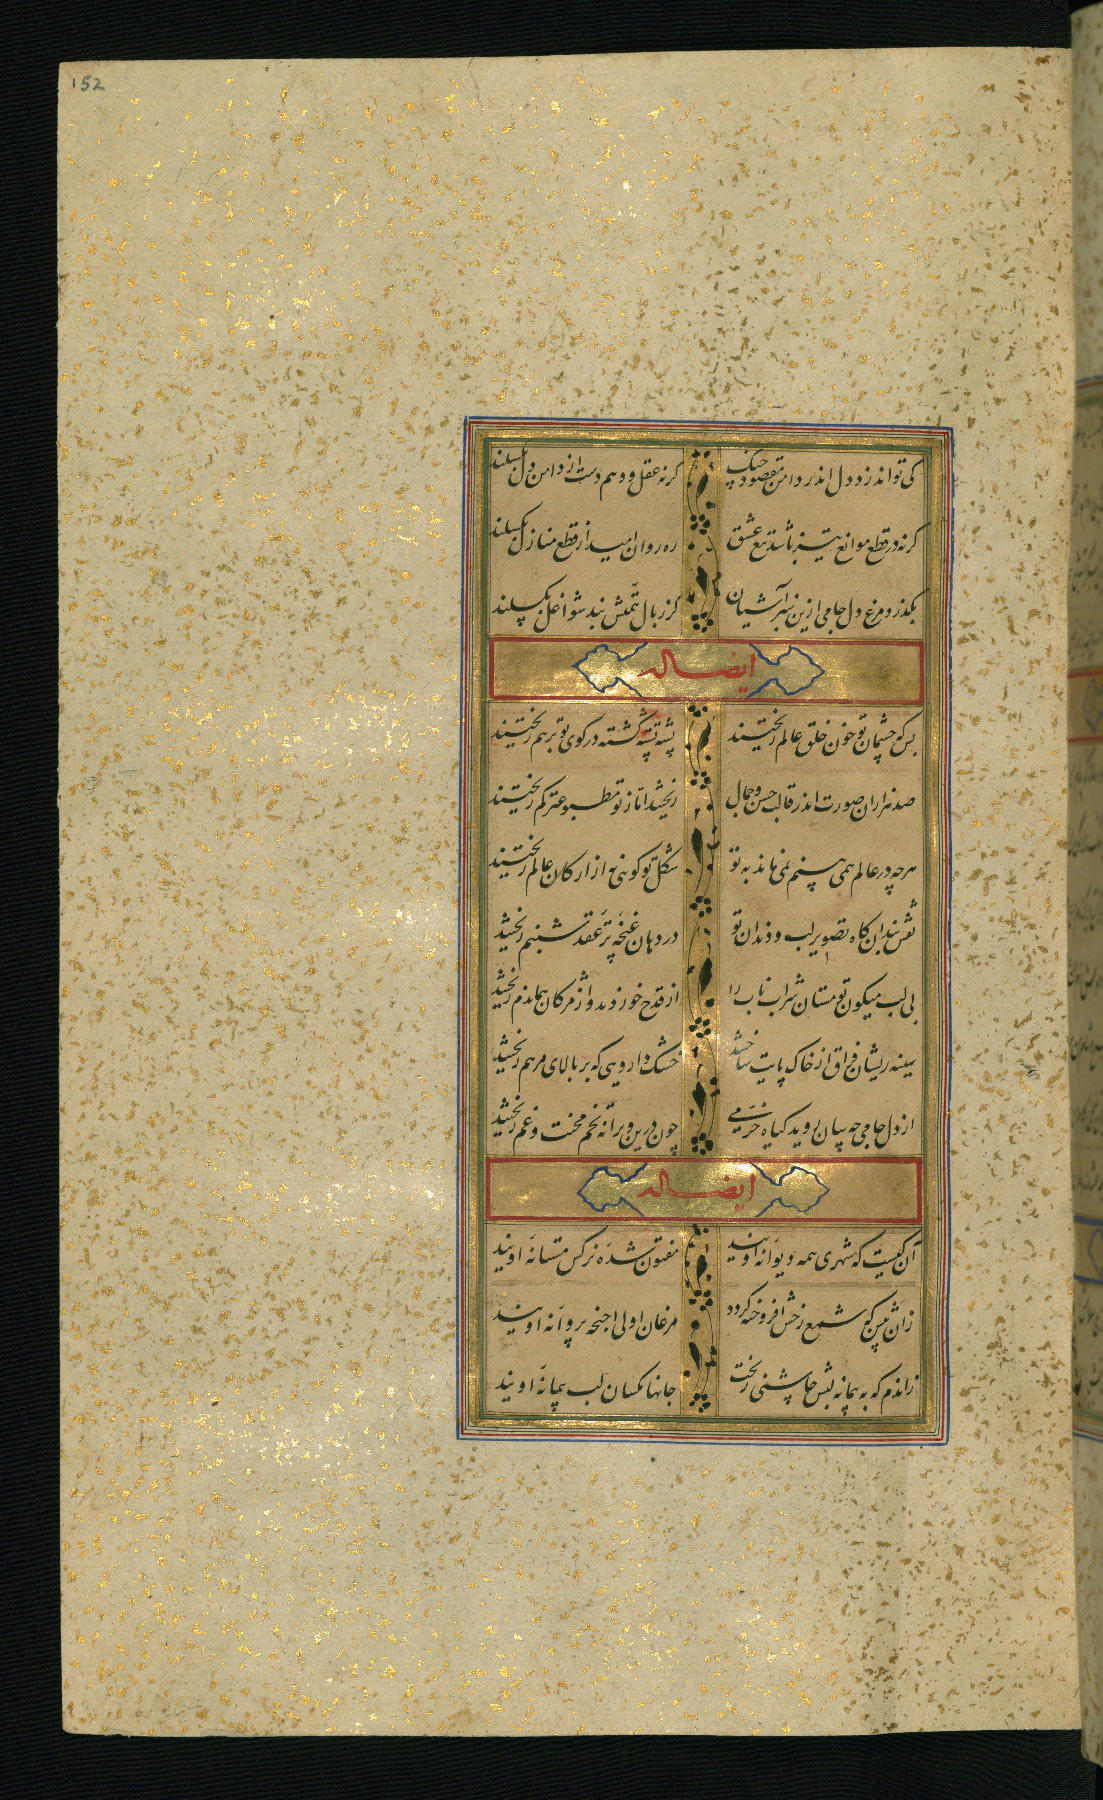 152
کی تواند زد دل اندر دامن مقصود چنک
کرنه عقل و وهم دست از دامن دل بکسلند
کرنه در قطع موانع تیز باشد تیغ عشق
ره روان امید از قطع منازل بکسلند
بکذرد مرغ دل جامی ازین نه آشیان
کز بال همتش بند شواغل بکسلند
ایضا له
بس که چشمان تو خون خلق عالم ریختند
پشته پشته کشته در کوی تو بر هم ریختند
صد هزاران صورت اندر قالب حسن و جمال
ریختند اما ز تو مطبوعتر کم ریختند
هرچه در عالم همی بینم نمی ماند به تو
شکل تو کوئی نه از ارکان عالم ریختند
نقش بندان کاه تصویر لب و دندان تو
در دهان غنچه تر عقد شبنم ریختند
بی لب میکون تو مستان شراب ناب را
از قدح خوردند و از مژکان هماندم ریختند
سینه ریشان فراق از خاک پایت ساختند
خشک دارویی که بر بالای مرهم ریختند
از دل جامی چه سان روید کیاه خرمی
چون درین ویرانه تخم محنت و غم ریختند
ایضا له
آن کیست که شهری همه دیوانه اویند
مفتون شده نرکس مستانه اویند
زان پیش که شمع رخش افروخته کردد
مرغان اولی اجنحه پروانه اویند
زاندم که به پیمانه لبش چاشنی ریخت
جانها مکسان لب پیمانه اویند